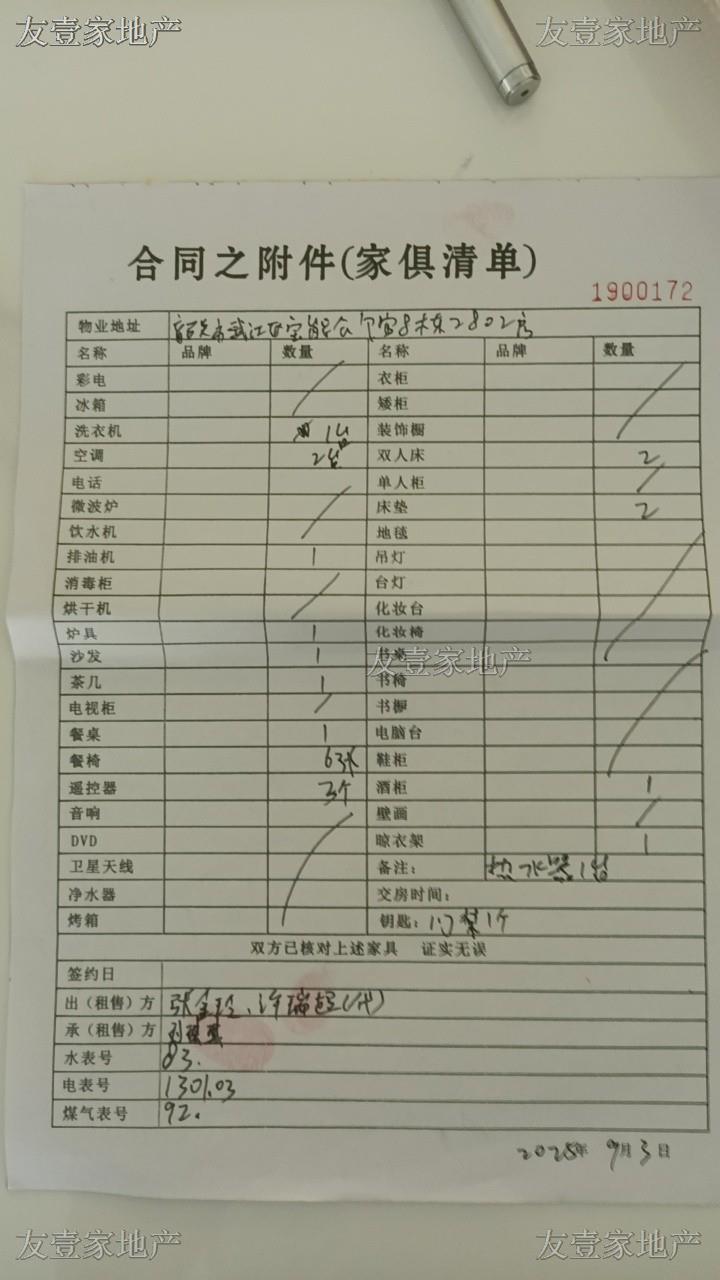 友壹家地产 友壹家地产
合同之附件(家俱清单)
1900172
物业地址 韶关市武江区宝能 8栋2802房
名称 品牌 数量 名称 品牌 数量
彩电 衣柜
冰箱 矮柜
洗衣机 1台 装饰橱
空调 2台 双人床 2
电话 单人柜
微波炉 床垫 2
饮水机 地毯
排油机 1 吊灯
消毒柜 台灯
烘干机 化妆台
炉具 1 化妆椅
沙发 1 书桌
友壹家地产
茶几 1 书椅
电视柜 书橱
餐桌 1 电脑台
餐椅 6张 鞋柜
遥控器 3个 酒柜 1
音响 壁画
DVD 晾衣架 1
卫星天线 备注: 热水器1台
净水器 交房时间:
烤箱 钥匙: 1个
双方已核对上述家具 证实无误
签约日
出（租售）方 张金玲、许瑞 (代)
承（租售）方
水表号 83.
电表号 1301.03
煤气表号 92.
2025年 9月3日
友壹家地产 友壹家地产